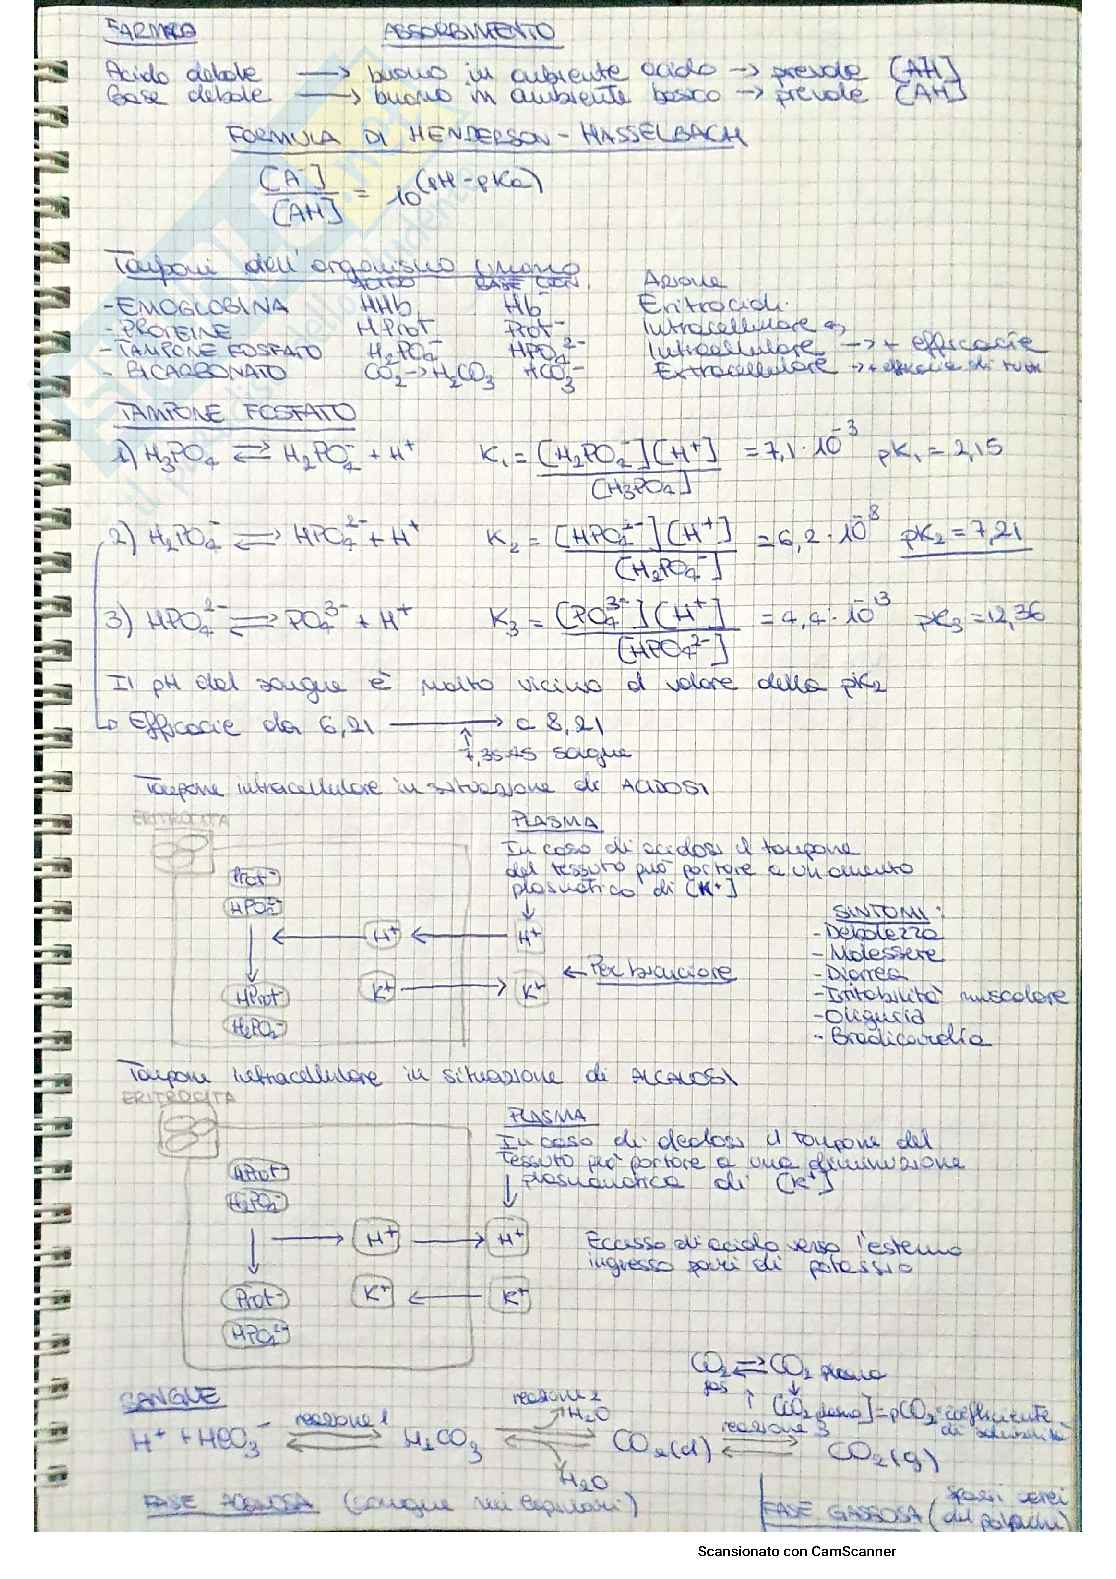 FARMACO ASSORBIMENTO
Acido debole → buono in ambiente acido → prevale [AH]
Base debole → buono in ambiente basico → prevale [AH]
FORMULA DI HENDERSON-HASSELBACH
[A⁻]/[AH] = 10^(pH-pKa)
Tamponi dell'organismo umano
ACIDO BASE CON. Azione
-EMOGLOBINA HHb Hb⁻ Eritrociti
-PROTEINE HProt Prot⁻ Intracellulare
-TAMPONE FOSFATO H₂PO₄⁻ HPO₄²⁻ Intracellulare → + efficacie
-BICARBONATO CO₂→H₂CO₃ HCO₃⁻ Extracellulare → + efficacie di tutti
TAMPONE FOSFATO
1) H₃PO₄ ⇄ H₂PO₄⁻ + H⁺ K₁ = [H₂PO₄⁻][H⁺]/[H₃PO₄] = 7,1·10⁻³ pK₁ = 2,15
2) H₂PO₄⁻ ⇄ HPO₄²⁻ + H⁺ K₂ = [HPO₄²⁻][H⁺]/[H₂PO₄⁻] = 6,2·10⁻⁸ pK₂ = 7,21
3) HPO₄²⁻ ⇄ PO₄³⁻ + H⁺ K₃ = [PO₄³⁻][H⁺]/[HPO₄²⁻] = 4,4·10⁻¹³ pK₃ = 12,36
Il pH del sangue è molto vicino al valore della pK₂
↳ Efficacie da 6,21 → a 8,21
↑
7,35-45 sangue
Tampone intracellulare in situazione di ACIDOSI
ERITROCITA
PLASMA
In caso di acidosi il tampone
del tessuto può portare a un aumento
plasmatico di [K⁺]
Prot⁻
HPO₄²⁻
H⁺ ← H⁺
K⁺ → K⁺ ← Per bilanciare
HProt
H₂PO₄⁻
SINTOMI:
-Debolezza
-Malessere
-Diarrea
-Irritabilità muscolare
-Oliguria
-Bradicardia
Tampone intracellulare in situazione di ALCALOSI
ERITROCITA
PLASMA
In caso di alcalosi il tampone del
tessuto può portare a una diminuzione
plasmatica di [K⁺]
HProt
H₂PO₄⁻
H⁺ → H⁺
Eccesso di acido verso l'esterno
ingresso di potassio
Prot⁻
HPO₄²⁻
K⁺ ← K⁺
CO₂ gas ⇄ CO₂ plasma
[CO₂ plasma] = pCO₂·coefficiente
di solubilità
SANGUE
H⁺ + HCO₃⁻ ⇄ reazione 1 H₂CO₃ ⇄ reazione 2 H₂O CO₂(d) ⇄ reazione 3 CO₂(g)
H₂O
FASE ACQUOSA (sangue nei capillari)
FASE GASSOSA (spazi aerei
dei polmoni)
Scansionato con CamScanner